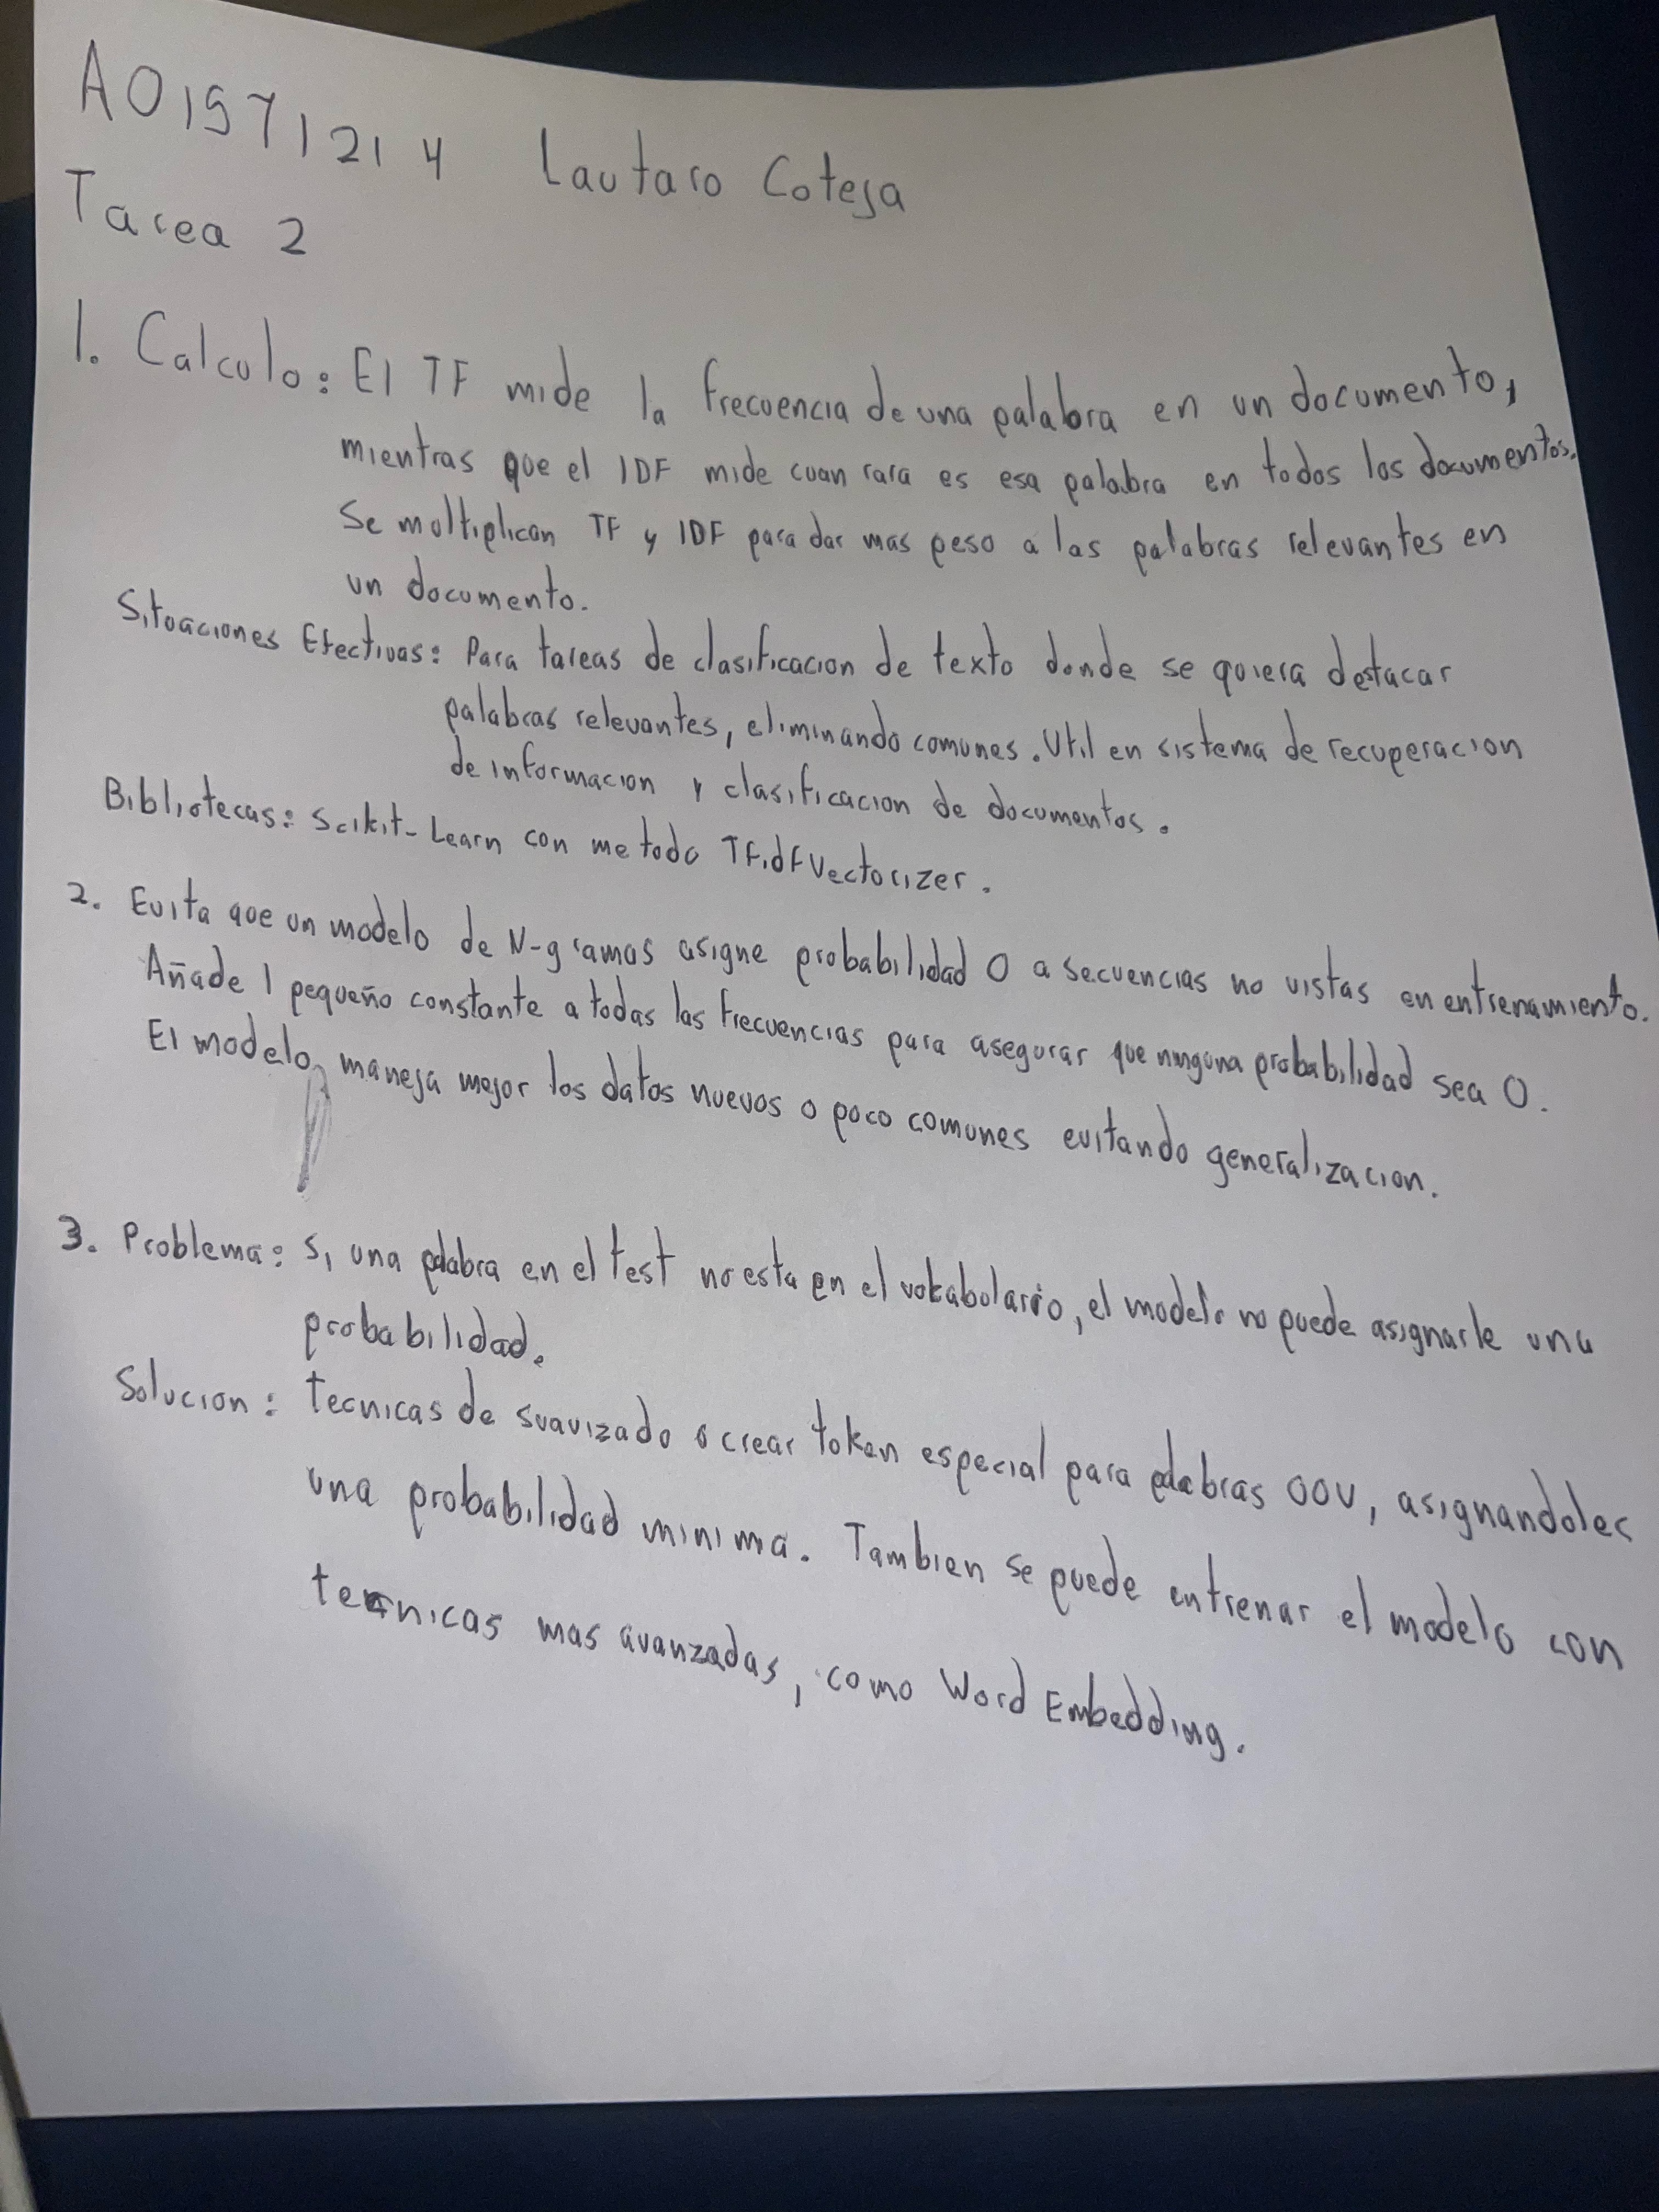 A01571214 Lautaro Coteja
Tarea 2
1. Calculo: El TF mide la frecuencia de una palabra en un documento,
mientras que el IDF mide cuan rara es esa palabra en todos los documentos.
Se multiplican TF y IDF para dar mas peso a las palabras relevantes en
un documento.
Situaciones Efectivas: Para tareas de clasificacion de texto donde se quiera destacar
palabras relevantes, eliminando comunes. Util en sistema de recuperacion
de informacion y clasificacion de documentos.
Bibliotecas: Scikit-Learn con metodo TFidfVectorizer.
2. Evita que un modelo de N-gramas asigne probabilidad 0 a secuencias no vistas en entrenamiento.
Añade 1 pequeño constante a todas las frecuencias para asegurar que ninguna probabilidad sea 0.
El modelo maneja mejor los datos nuevos o poco comunes evitando generalizacion.
3. Problema: Si una palabra en el test no esta en el vokabolario, el modelo no puede asignarle una
probabilidad.
Solucion: tecnicas de suavizado o crear token especial para palabras OOV, asignandoles
una probabilidad minima. Tambien se puede entrenar el modelo con
tecnicas mas avanzadas, como Word Embedding.